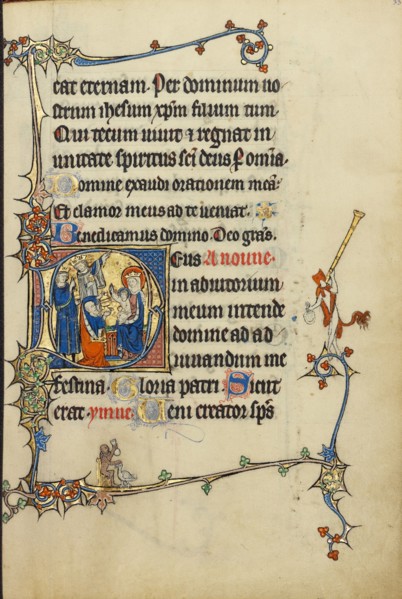 eat eternam. Per dominum no
strum ihesum xpm filium tuum.
Qui tecum uiuit ⁊ regnat in
unitate spiritus sci deus. P omia.
Domine exaudi orationem meā:
Et clamor meus ad te ueniat.
Benedicamus domino. Deo gras.
Deus A noune.
in adiutorium
meum intende
domine ad ad
iuuandum me
festina. Gloria patri. Sicut
erat. ymne. Veni creator sps